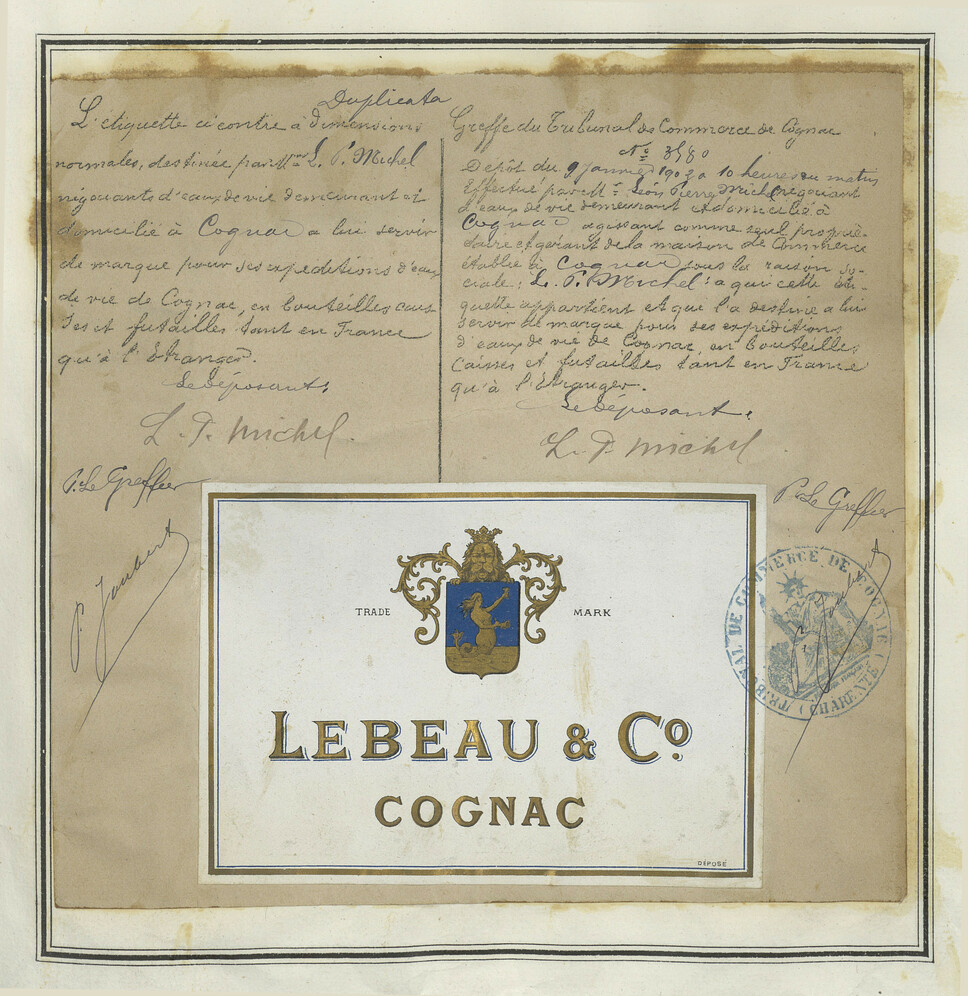 Duplicata
L'étiquette ci contre à dimensions
normales, destinée par Mr L. P. Michel
négociants d'eaux de vie demeurant et
domicilié à Cognac a lui servir
de marque pour ses expéditions d'eaux
de vie de Cognac, en bouteilles cais
ses et futailles tant en France
qu'à l'Etranger.
Le Déposant,
L. P. Michel.
P. Le Greffier
P. Joubert
Greffe du Tribunal de Commerce de Cognac
No 3580
Dépôt du 9 Janvier 190 à 10 heures du matin
Effectué par Mr Léon Pierre Michel négociant
d'eaux de vie demeurant et domicilié à
Cognac agissant comme seul proprié-
taire et gérant de la maison de Commerce
établie à Cognac sous la raison So-
ciale: L. P. Michel: a qui cette éti-
quette appartient et que l'a destine a lui
servir de marque pour ses expéditions
d'eaux de vie de Cognac, en bouteilles
Caisses et futailles tant en France
qu'à l'Etranger.
Le Déposant.
L. P. Michel
P. Le Greffier
P. Joubert
TRIBUNAL DE COMMERCE DE COGNAC (CHARENTE)
TRADE MARK
LEBEAU & Co.
COGNAC
DÉPOSÉ